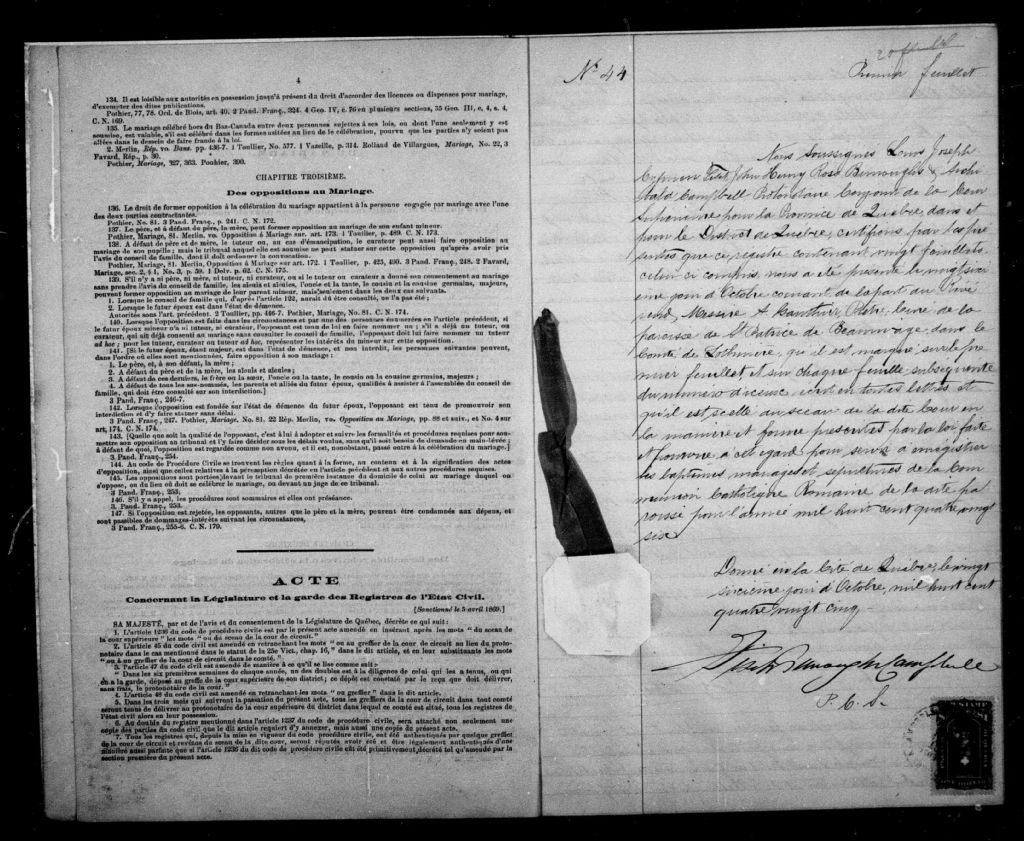 4
134. Il est loisible aux autorités en possession jusqu'à présent du droit d'accorder des licences ou dispenses pour mariage,
d'exempter des dites publications.
Pothier, 77, 78. Ord. de Blois, art. 40. 2 Pand. Franç., 324. 4 Geo. IV, c. 76 en plusieurs sections, 35 Geo. III, c, 4, s. 4,
C. N. 169.
135. Le mariage célébré hors du Bas-Canada entre deux personnes sujettes à ses lois, ou dont l'une seulement y est
soumise, est valable, s'il est célébré dans les formes usitées au lieu de la célébration, pourvu que les parties n'y soient pas
allées dans le dessein de faire fraude à la loi.
2. Merlin, Rép. vo. Bans. pp. 436-7. 1 Toullier, No. 577. 1 Vazeille, p. 314. Rolland de Villargues, Mariage, No. 22, 3
Favard, Rép., p. 30.
Pothier, Mariage, 327, 363. Pouhier, 390.
CHAPITRE TROISIÈME.
Des oppositions au Mariage.
136. Le droit de former opposition à la célébration du mariage appartient à la personne engagée par mariage avec l'une
des deux parties contractantes.
Pothier, No. 81. 3 Pand. Franç., p. 241. C. N. 172.
137. Le père, et à défaut du père, la mère, peut former opposition au mariage de son enfant mineur.
Pothier, Mariage, 81. Merlin, vo. Opposition à Mariage sur. art. 173. 1 Toullier, p. 489. C. N. 173.
138. A défaut de père et de mère, le tuteur ou, au cas d'émancipation, le curateur peut aussi faire opposition au
mariage de son pupille; mais le tribunal auquel elle est soumise ne peut statuer sur cette opposition qu'après avoir pris
l'avis du conseil de famille, dont il doit ordonner la convocation.
Pothier, Mariage, 81. Merlin, Opposition à Mariage sur art. 172. 1 Toullier, p. 425, 490. 3 Pand. Franç., 248. 2 Favard,
Mariage, sec. 2, § 1, No. 3, p. 59. 1 Delv. p. 62. C. N. 175.
139. S'il n'y a ni père, ni mère, ni tuteur, ni curateur, ou si le tuteur ou curateur a donné son consentement au mariage
sans prendre l'avis du conseil de famille, les aïeuls et aïeules, l'oncle et la tante, le cousin et la cousine germains, majeurs,
peuvent former opposition au mariage de leur parent mineur, mais seulement dans les deux cas suivants.
1. Lorsque le conseil de famille qui, d'après l'article 122, aurait dû être consulté, ne l'a pas été;
2. Lorsque le futur époux est dans l'état de démence.
Autorités sous l'art. précédent. 2 Toullier, pp. 466-7. Pothier, Mariage, No. 81. C. N. 174.
140. Lorsque l'opposition est faite dans les circonstances et par une des personnes énoncées en l'article précédent, si
le futur époux mineur n'a ni tuteur, ni curateur, l'opposant est tenu de lui en faire nommer un; s'il a déjà un tuteur, ou
curateur, qui ait déjà consenti au mariage sans consulter le conseil de famille, l'opposant doit lui faire nommer un tuteur
ad hoc; pour les tuteur, curateur ou tuteur ad hoc, représenter les intérêts du mineur sur cette opposition.
141. [Si le futur époux, étant majeur, est dans l'état de démence, et non interdit, les personnes suivantes peuvent,
dans l'ordre où elles sont mentionnées, faire opposition à son mariage:
1. Le père, et, à son défaut, la mère;
2. A défaut du père et de la mère, les aïeuls et aïeules;
3. A défaut de ces derniers, le frère ou la sœur, l'oncle ou la tante, le cousin ou la cousine germains, majeurs;
4. A défaut de tous les sus-nommés, les parents et alliés du futur époux, qualifiés à assister à l'assemblée du conseil de
famille, qui doit être consulté sur son interdiction.]
3 Pand. Franç., 246-7.
142. Lorsque l'opposition est fondée sur l'état de démence du futur époux, l'opposant est tenu de promouvoir son
interdiction et d'y faire statuer sans délai.
3 Pand. Franç., 247. Pothier, Mariage, No. 81. 22 Rép. Merlin, vo. Opposition au Mariage, pp. 88 et suiv., et No. 4 sur
art, 174, C. N. 174.
143. [Quelle que soit la qualité de l'opposant, c'est à lui à adopter et suivre les formalités et procédures requises pour sou-
mettre son opposition au tribunal et l'y faire décider sous les délais voulus, sans qu'il soit besoin de demande en main-levée;
à défaut de quoi, l'opposition est regardée comme non avenu, et il est, nonobstant, passé outre à la célébration du mariage.]
3. Pand. Franç., 254.
144. Au code de Procédure Civile se trouvent les règles quant à la forme, au contenu et à la signification des actes
d'opposition, ainsi que celles relatives à la péremption décrétée en l'article précédent et aux autres procédures requises.
145. Les oppositions sont portées devant le tribunal de première instance du domicile de celui au mariage duquel on
s'oppose, ou du lieu où doit se célébrer le mariage, ou devant un juge de ce tribunal.
3 Pand. Franç., 253.
146. S'il y a appel, les procédures sont sommaires et elles ont préséance.
3. Pand. Franç., 253.
147. Si l'opposition est rejetée, les opposants, autres que le père et la mère, peuvent être condamnés aux dépens, et
sont passibles de dommages-intérêts suivant les circonstances,
3 Pand. Franç., 255-6. C. N. 179.
ACTE
Concernant la Législature et la garde des Registres de l'Etat Civil.
[Sanctionné le 5 avril 1869.]
SA MAJESTÉ, par et de l'avis et du consentement de la Législature de Québec, décrète ce qui suit:
1. L'article 1236 du code de procédure civile est par le présent acte amendé en insérant après les mots " du sceau de
la cour supérieure " les mots " ou du sceau de la cour de circuit."
2. L'article 45 du code civil est amendé en retranchant les mots " ou au greffier de la cour de circuit au lieu du proto-
notaire dans le cas mentionné dans le statut de la 25e Vict., chap. 16," dans le dit article, et en leur substituant les mots
" ou à un greffier de la cour de circuit dans le comté."
3. L'article 47 du code civil est amendé de manière à ce qu'il se lise comme suit:
" Dans les six premières semaines de chaque année, un des doubles est à la diligence de celui qui les a tenus, ou qui
en a la garde, déposé au greffe de la cour supérieure de son district; ce dépôt est constaté par le reçu que doit délivrer,
sans frais, le protonotaire de la cour."
4. L'article 48 du code civil est amendé en retranchant les mots " ou greffier " dans le dit article.
5. Dans les trois mois qui suivront la passation du présent acte, tous les greffiers de la cour de circuit dans tout comté
seront tenus de délivrer au protonotaire de la cour supérieure du district dans lequel ce comté est situé, tous les registres de
l'état civil alors en leur possession.
6. Au double du registre mentionné dans l'article 1237 du code de procédure civile, sera attaché non seulement une
copie des parties du code civil que le dit article requiert d'y annexer, mais aussi une copie du présent acte.
7. Tous les registres qui, depuis la mise en vigueur du code procédure civile, ont été authentiqués par quelque greffier
de la cour de circuit et revêtus du sceau de la dite cour, seront réputés avoir été et être légalement authentiqués d'une
manière aussi parfaite que si l'article 1236 du dit code de procédure civile eût été primitivement décrété tel qu'amendé par la
section première du présent acte.
No 44
20
Premier feuillet
Nous Soussignés Louis Joseph
Cyprien Fiset John Henry Ross Burroughs & Archi
bald Campbell Protonotaire Conjoint de la Cour
Supérieure pour la Province de Québec, dans et
pour le District de Québec, certifions par les pré
sentes que ce registre contenant vingt feuillets
celui ci compris, nous a été présenté le vingt sixi
ème jour d'Octobre courant de la part du Révé
rend, Messire A Gauthier, Ptre, Curé de la
paroisse de St Patrice de Beaurivage, dans le
Comté de Lotbinière, qu'il est marqué sur le pre
mier feuillet et sur chaque feuille subséquente
du numéro d'icelle écrit en toutes lettres et
qu'il est scellé du sceau de la dite Cour en
la manière et forme prescrites par la loi faite
et pourvue à cet égard pour servir à enregistrer
les baptêmes mariages et sépultures de la Com
munion Catholique Romaine de la dite pa
roisse pour l'année mil huit cent quatre vingt
six
Donné en la Cité de Québec, le vingt
sixième jour d'Octobre, mil huit cent
quatre vingt cinq.
Fiset Burroughs Campbell
P. C. S.